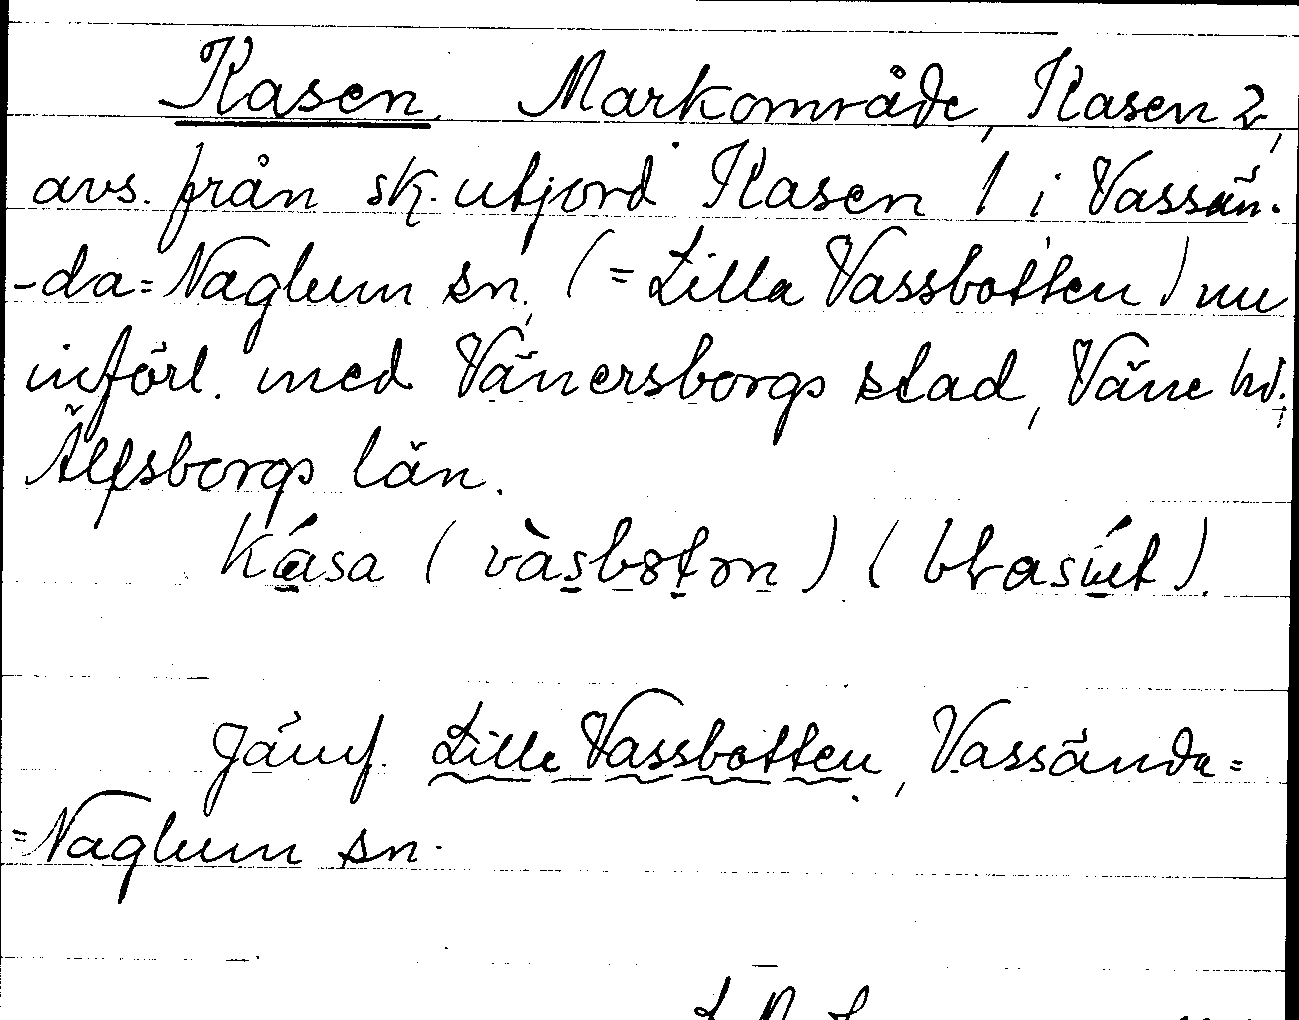 Kasen. Markområde, Kasen 2,
avs. från sk. utjord Kasen 1 i Vassän-
-da=Naglum sn, (= Lilla Vassbotten) nu
införl. med Vänersborgs stad, Väne hd.;
Älfsborgs län.
kása (vàsbotn)
Jämf. Lille Vassbotten, Vassända=
=Naglum sn.